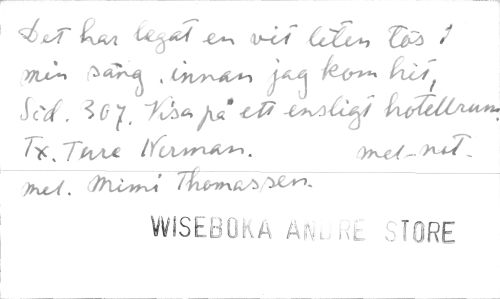 Det har legat en vit liten tös i
min säng, innan jag kom hit,
Sid. 307. Visa på ett ensligt hotellrum.
Tx. Ture Nerman. mel-not.
mel. Mimi Thomassen.
WISEBOKA ANDRE STORE